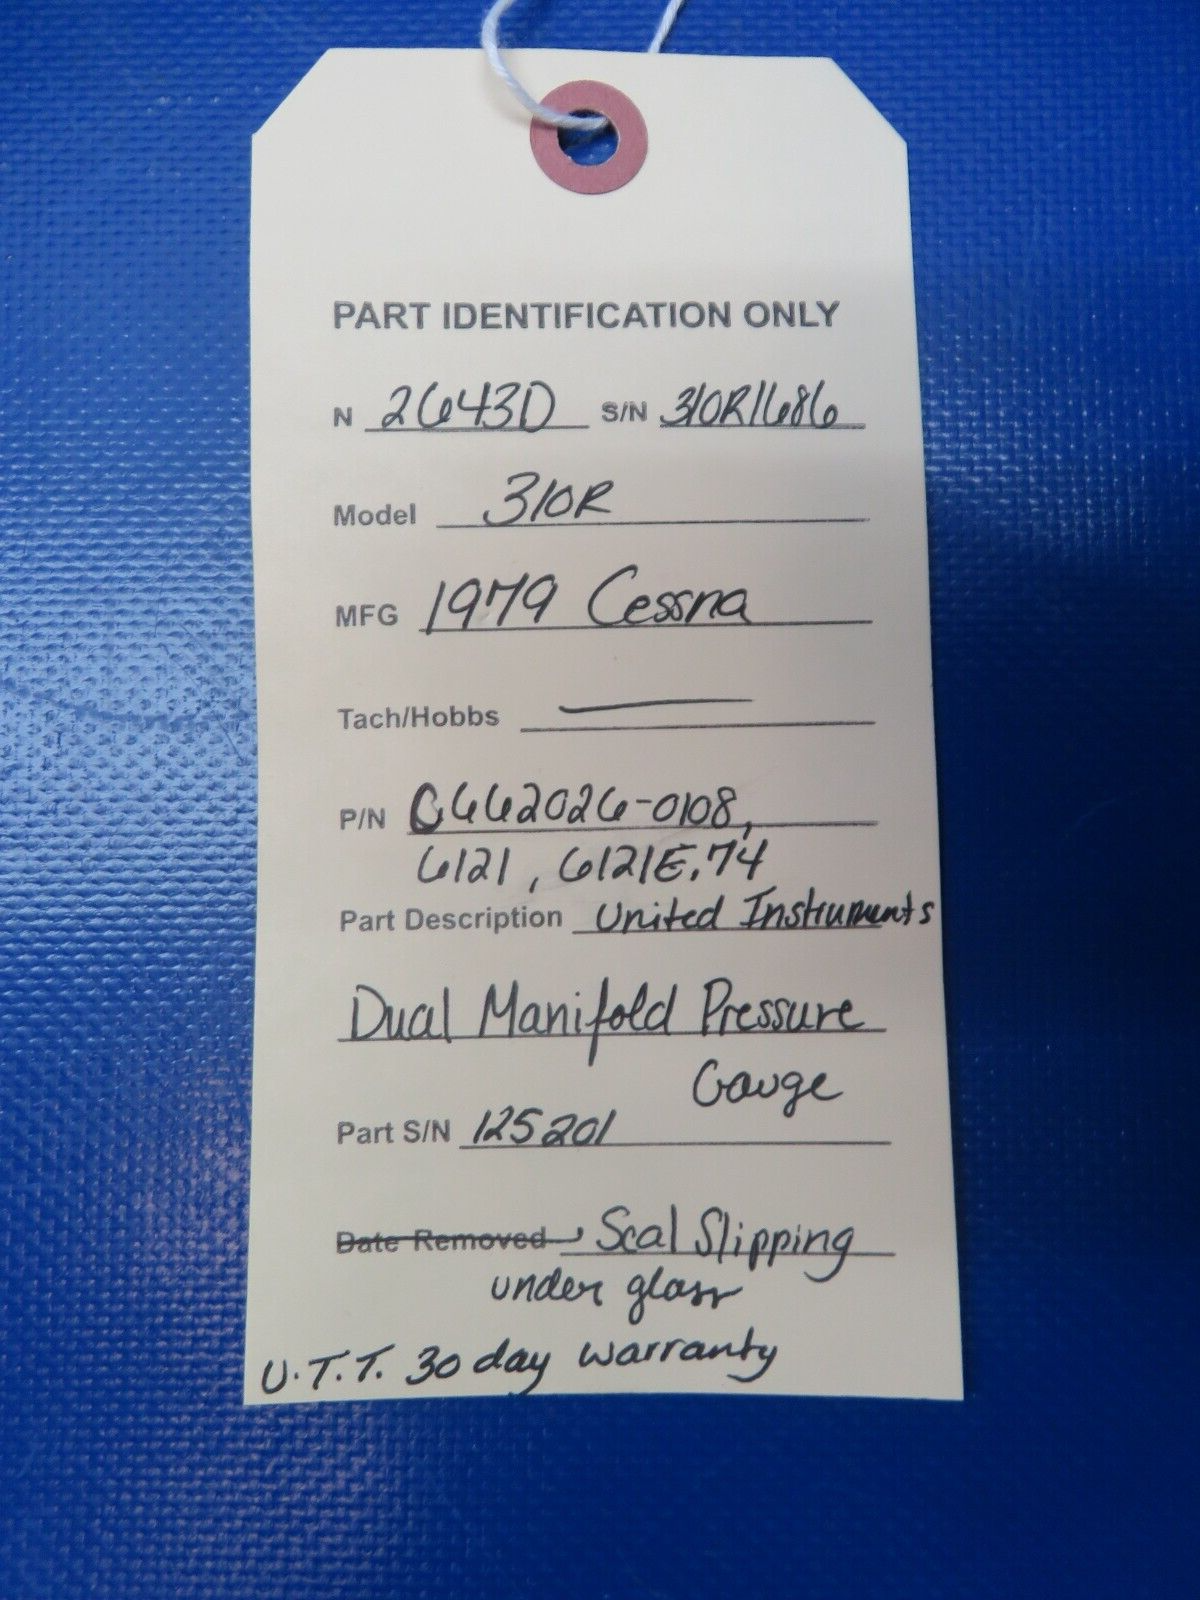 PART IDENTIFICATION ONLY
N 2643D S/N 310R1686
Model 310R
MFG 1979 Cessna
Tach/Hobbs —
P/N C662026-0108,
6121, 6121E.74
Part Description United Instruments
Dual Manifold Pressure
Gauge
Part S/N 125201
Date Removed Seal Slipping
under glass
U.T.T. 30 day warranty